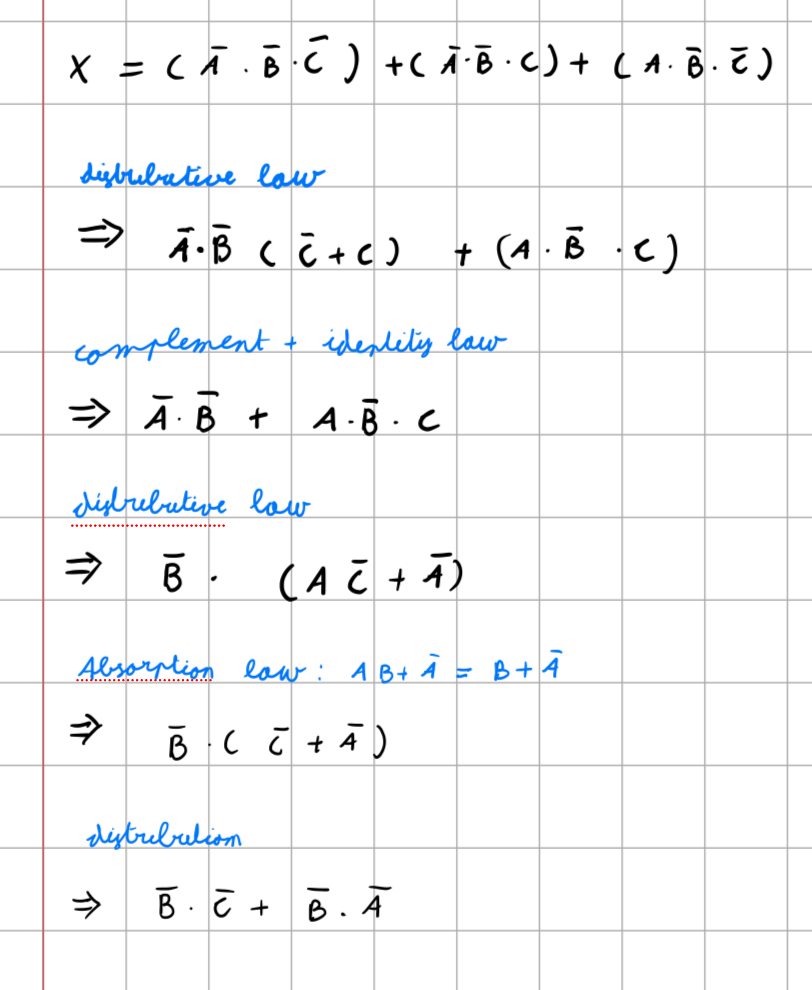 X = ( A̅ · B̅ · C̅ ) + ( A̅ · B̅ · C ) + ( A · B̅ · C̅ )
distributive law
⇒ A̅ · B̅ ( C̅ + C ) + ( A · B̅ · C )
complement + identity law
⇒ A̅ · B̅ + A · B̅ · C
distributive law
⇒ B̅ · ( A C̅ + A̅ )
Absorption law : A B + A̅ = B + A̅
⇒ B̅ · ( C̅ + A̅ )
distribution
⇒ B̅ · C̅ + B̅ . A̅